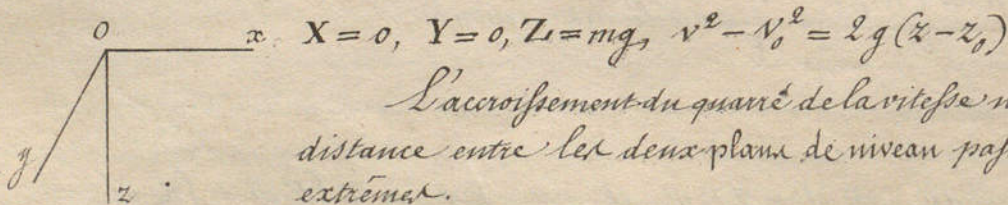 O x X = 0, Y = 0, Z = mg, v² - v₀² = 2g(z - z₀)
L'accroissement du quarré de la vitesse
distance entre les deux plans de niveau
y z extrêmes.